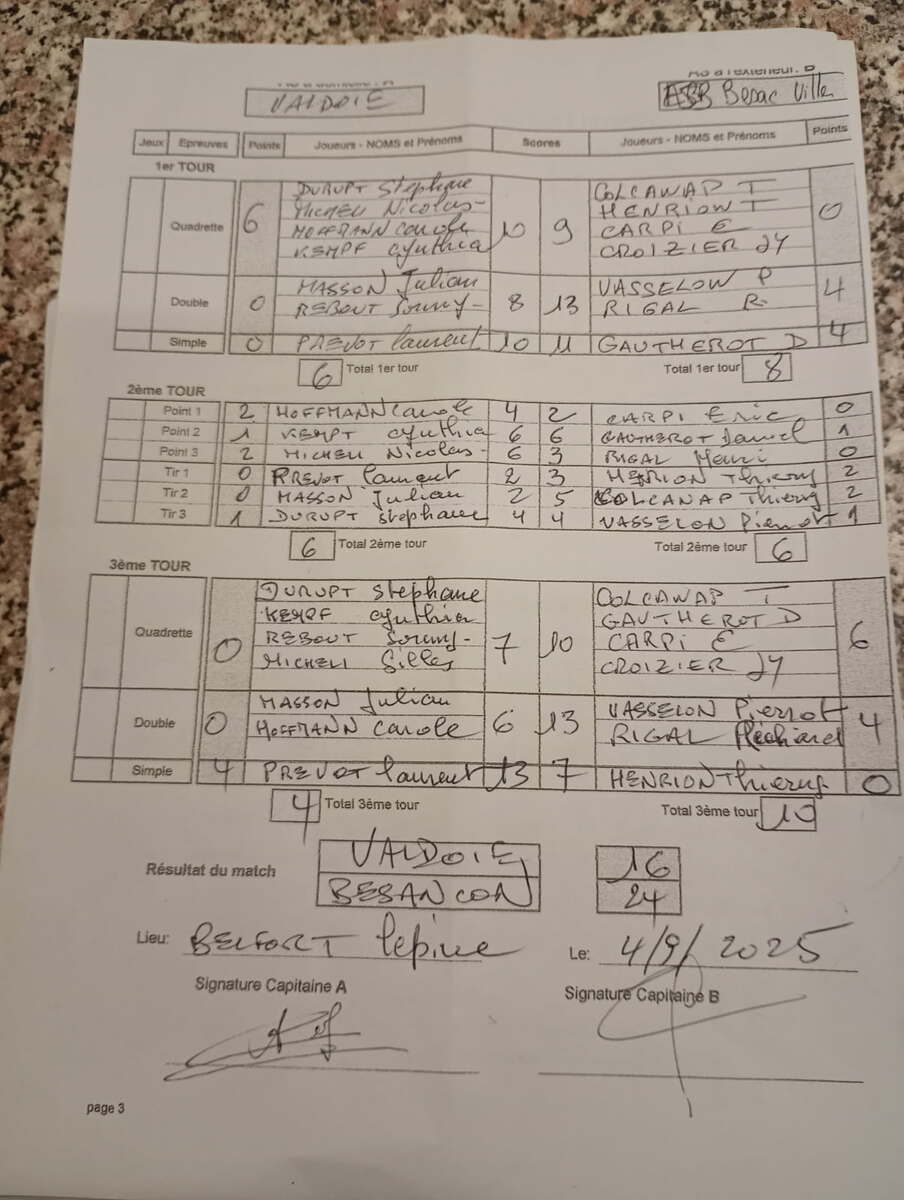 VALDOIE
ASB Besac Ville
Jeux Epreuves Points Joueurs - NOMS et Prénoms Scores Joueurs - NOMS et Prénoms Points
1er TOUR
Quadrette 6 DURUPT Stephane 10 9 COLCANAP T 0
MICHELI Nicolas HENRION T
HOFFMANN Carole CARPI E
KEMPF Cynthia CROIZIER JY
Double 0 MASSON Julian 8 13 VASSELON P 4
REBOUT Sonny RIGAL R.
Simple 0 PREVOT laurent 10 11 GAUTHEROT D 4
6 Total 1er tour Total 1er tour 8
2ème TOUR
Point 1 2 HOFFMANN Carole 4 2 CARPI Eric 0
Point 2 1 KEMPT Cynthia 6 6 GAUTHEROT Daniel 1
Point 3 2 MICHELI Nicolas 6 3 RIGAL 0
Tir 1 0 PREVOT laurent 2 3 HENRION Thierry 2
Tir 2 0 MASSON Julian 2 5 COLCANAP Thierry 2
Tir 3 1 DURUPT Stephane 4 4 VASSELON Pierrot 1
6 Total 2ème tour Total 2ème tour 6
3ème TOUR
Quadrette 0 DURUPT Stephane 7 10 COLCANAP T 6
KEMPF Cynthia GAUTHEROT D
REBOUT Sonny CARPI E
MICHELI Gilles CROIZIER JY
Double 0 MASSON Julian 6 13 VASSELON Pierrot 4
HOFFMANN Carole RIGAL
Simple 4 PREVOT laurent 13 7 HENRION Thierry 0
4 Total 3ème tour Total 3ème tour 10
Résultat du match VALDOIE 16
BESANCON 24
Lieu: BELFORT lepine Le: 4/9/2025
Signature Capitaine A Signature Capitaine B
page 3